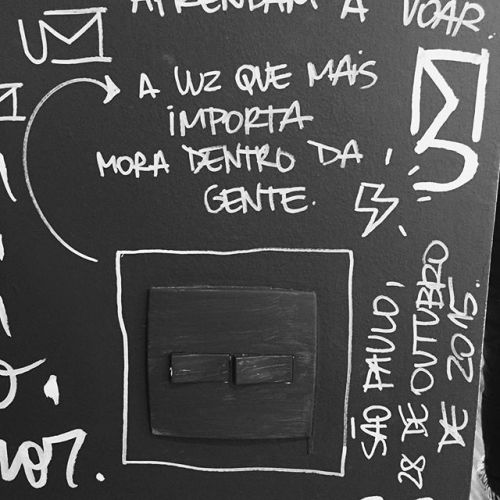 APRENDAM A VOAR.
UM
A LUZ QUE MAIS
IMPORTA
MORA DENTRO DA
GENTE.
SÃO PAULO,
28 DE OUTUBRO
DE 2015.